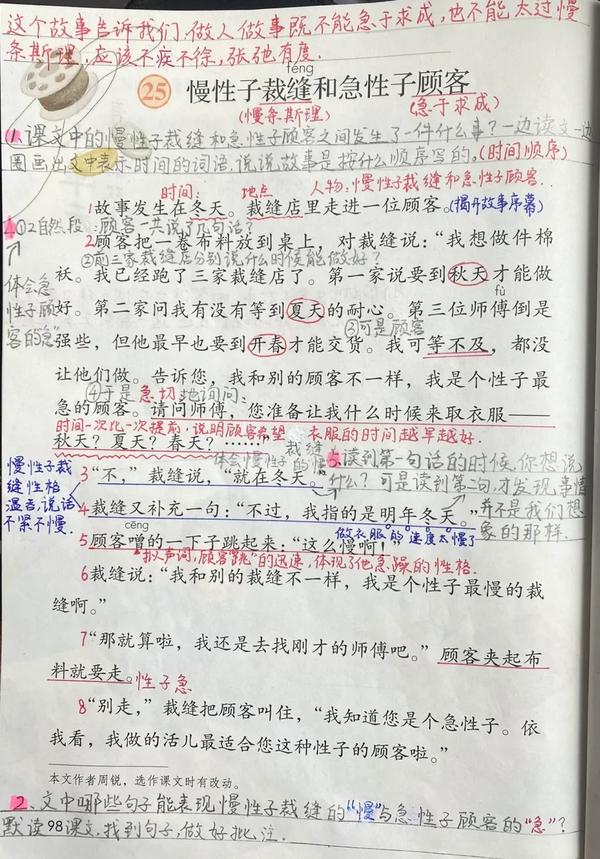 这个故事告诉我们,做人做事既不能急于求成,也不能太过慢
条斯理,应该不疾不徐,张弛有度.
fénɡ
25 慢性子裁缝和急性子顾客
(慢条斯理) (急于求成)
1.课文中的慢性子裁缝和急性子顾客之间发生了一件什么事?一边读文一边
圈画出文中表示时间的词语,说说故事是按什么顺序写的。(时间顺序)
时间: 地点 人物:慢性子裁缝和急性子顾客.
1故事发生在冬天。裁缝店里走进一位顾客。(揭开故事序幕)
4.①2自然段:顾客一共说了几句话?
2顾客把一卷布料放到桌上,对裁缝说:“我想做件棉
②前三家裁缝店分别说什么时候能做好?
体会急性子顾客的“急”
袄。我已经跑了三家裁缝店了。第一家说要到秋天才能做
fù
好。第二家问我有没有等到夏天的耐心。第三位师傅倒是
③可是顾客
强些,但他最早也要到开春才能交货。我可等不及,都没
让他们做。告诉您,我和别的顾客不一样,我是个性子最
④于是急切地询问:
急的顾客。请问师傅,您准备让我什么时候来取衣服——
时间一次比一次提前,说明顾客希望 衣服的时间越早越好.
秋天?夏天?春天?……”
体会慢性子的裁缝的慢
5.读到第一句话的时候,你想说
什么?可是读到第二句,才发现事情
并不是我们想
象的那样.
慢性子裁
缝性格
温吞,说话
不紧不慢.
3“不,”裁缝说,“就在冬天。”
4裁缝又补充一句:“不过,我指的是明年冬天。”
cēnɡ
做衣服的速度太慢了
5顾客噌的一下子跳起来:“这么慢啊!”
拟声词,顾客“跳”的迅速,体现了他急躁的性格.
6裁缝说:“我和别的裁缝不一样,我是个性子最慢的裁
缝啊。”
7“那就算啦,我还是去找刚才的师傅吧。”顾客夹起布
料就要走。性子急
8“别走,”裁缝把顾客叫住,“我知道您是个急性子。依
我看,我做的活儿最适合您这种性子的顾客啦。”
本文作者周锐,选作课文时有改动。
2、文中哪些句子能表现慢性子裁缝的“慢”与急性子顾客的“急”?
默读98课文,找到句子,做好批注.